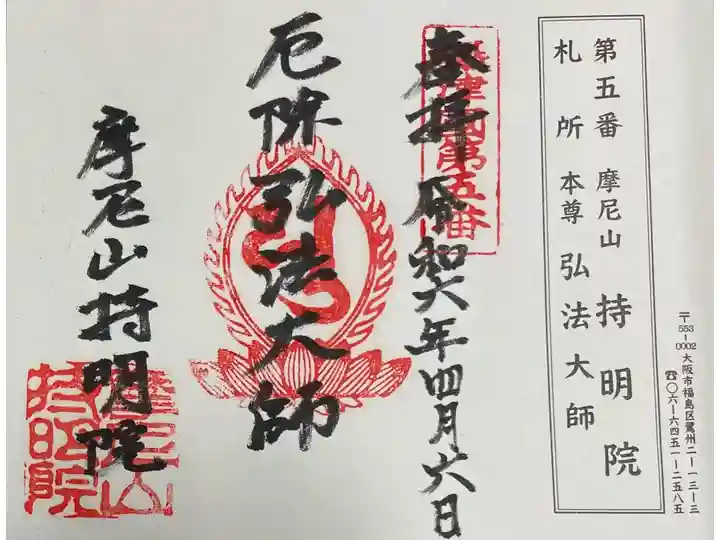 第五番 摩尼山 持明院
札所 本尊 弘法大師
〒553-0002大阪市福島区鷺州二-一三-三
☎〇六-六四五一-二五八五
摂津国第五番
奉拝 令和六年四月六日
厄除 弘法大師
摩尼山持明院
摩尼山
持明院